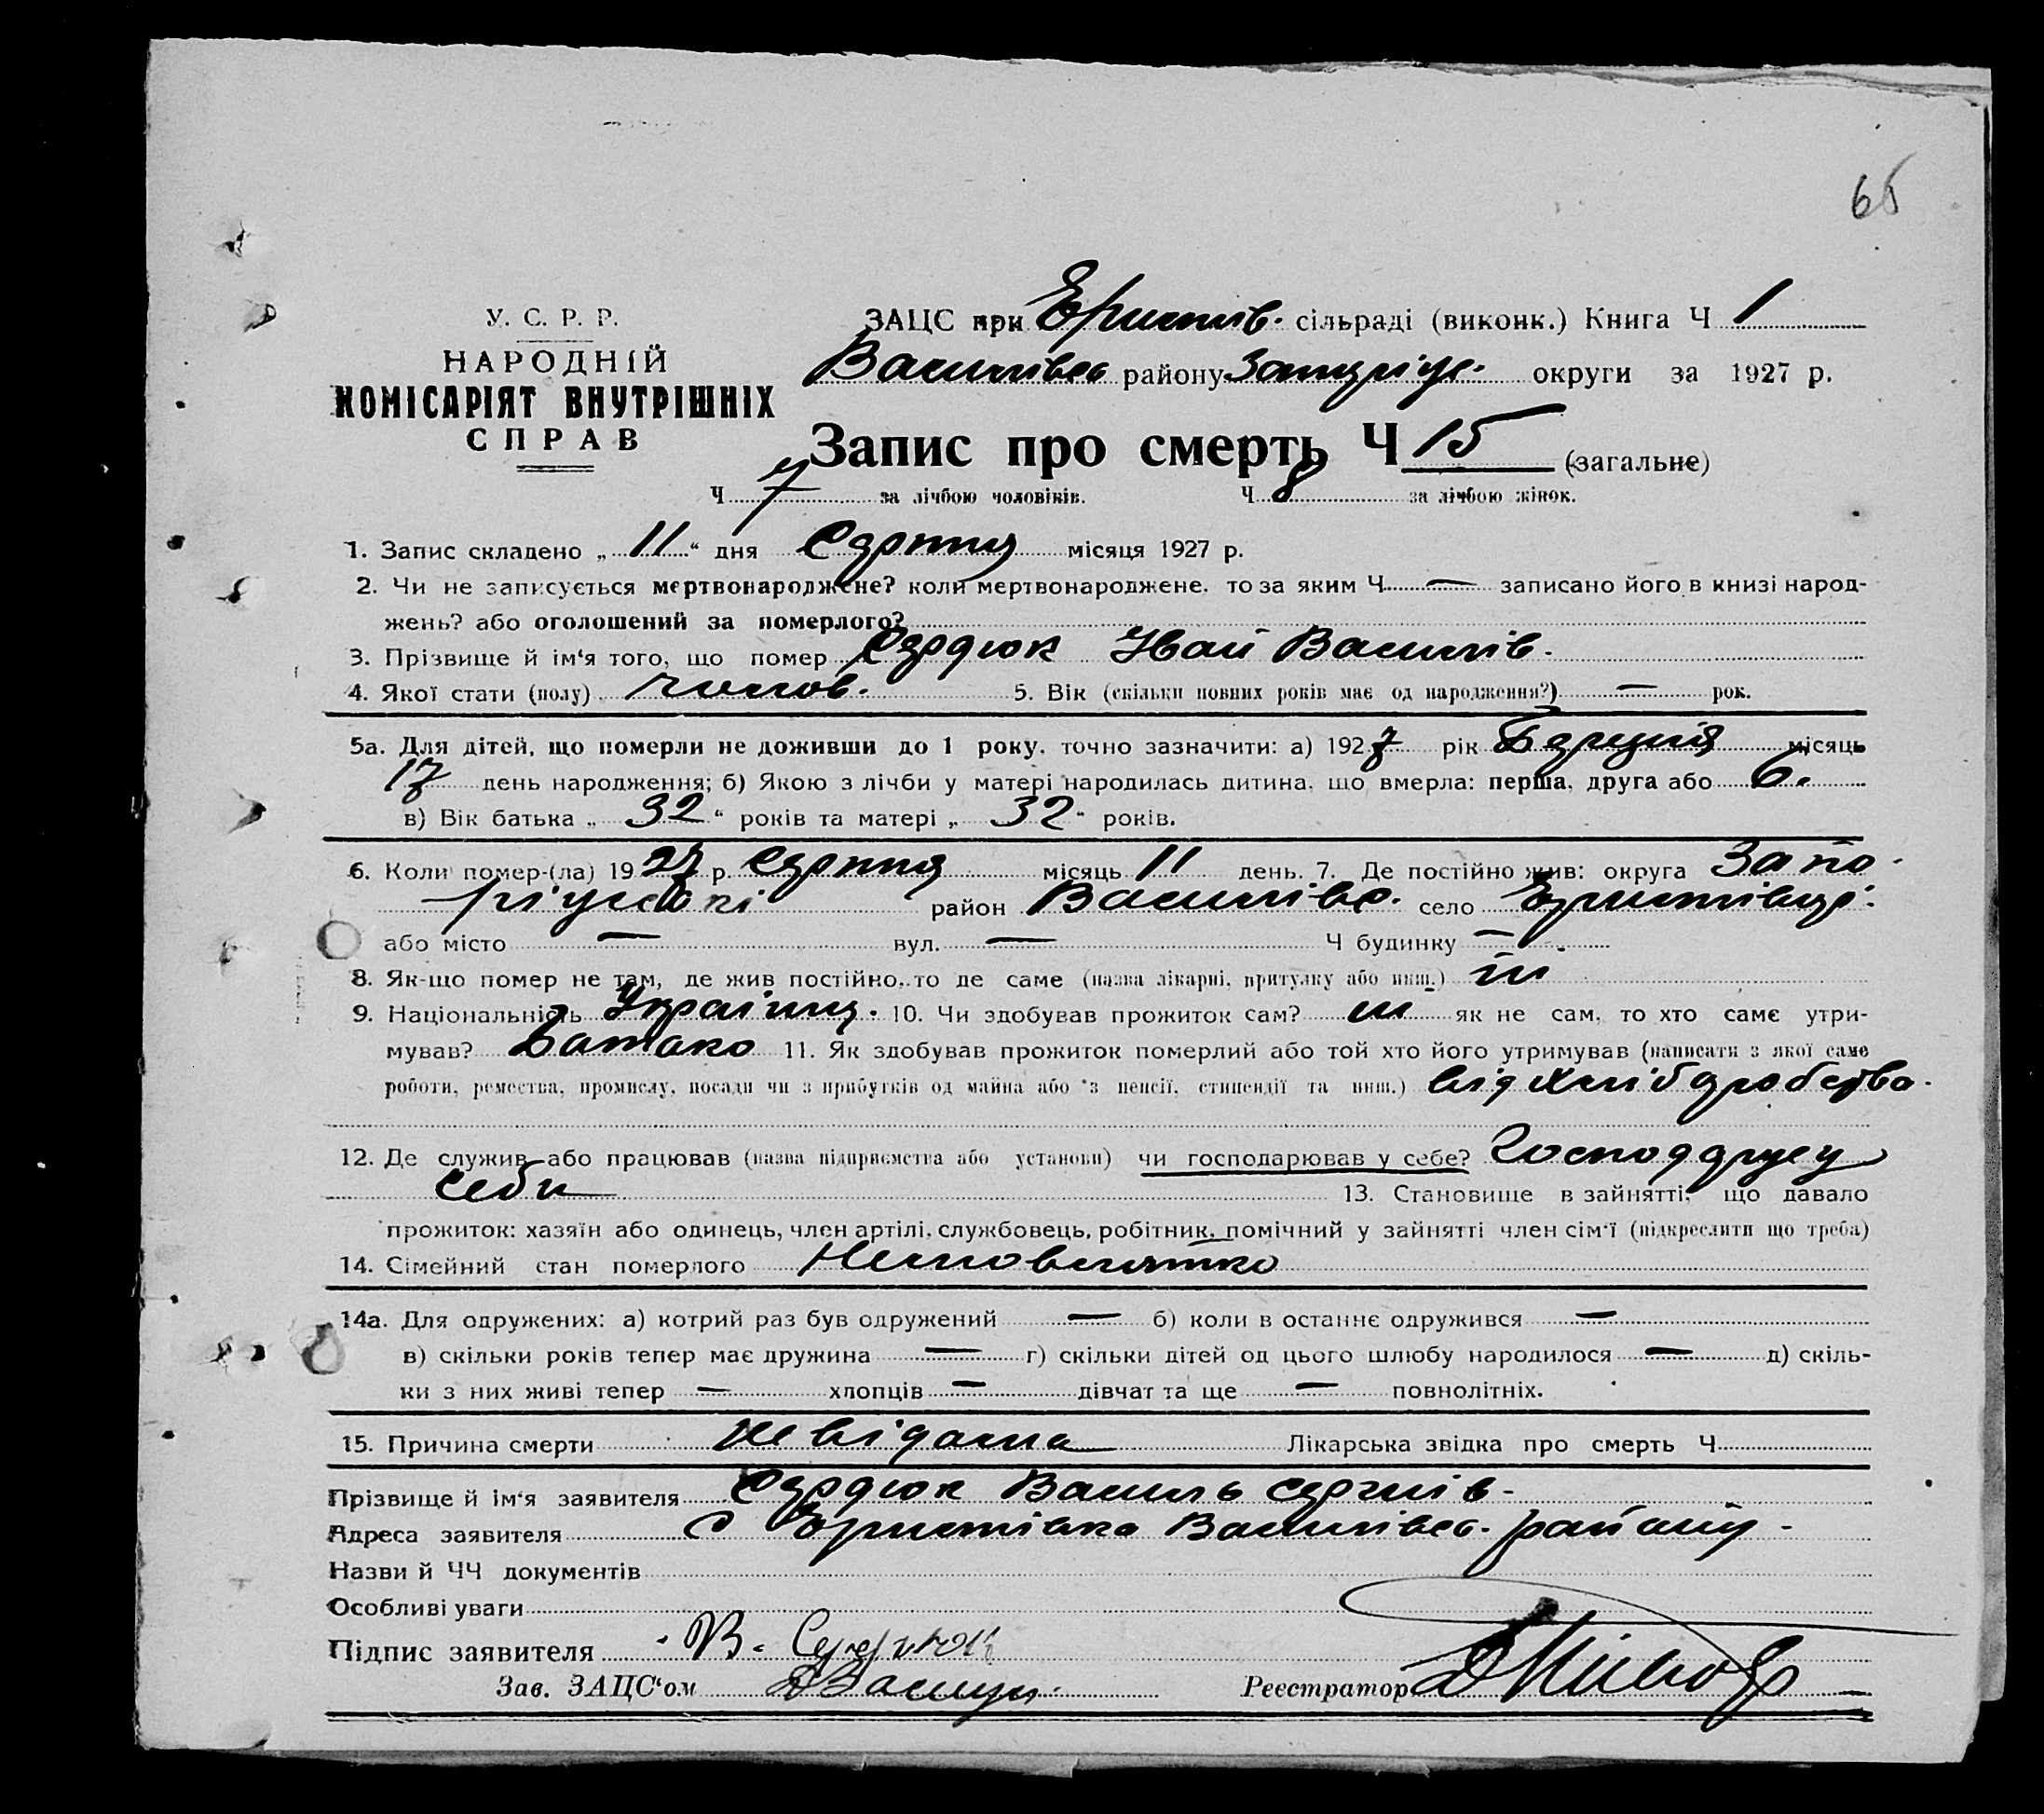 65
У. С. Р. Р.
НАРОДНІЙ
КОМІСАРІЯТ ВНУТРІШНІХ
СПРАВ
ЗАЦС при Еристів. сільраді (виконк.) Книга Ч 1
Василівс району Запоріж. округи за 1927 р.
Запис про смерть Ч 15 (загальне)
Ч 7 за лічбою чоловіків. Ч 8 за лічбою жінок.
1. Запис складено „ 11 “ дня Серпня місяця 1927 р.
2. Чи не записується мертвонароджене? коли мертвонароджене, то за яким Ч — записано його в книзі народ-
жень? або оголошений за померлого?
3. Прізвище й ім‘я того, що помер Сердюк Іван Василів.
4. Якої стати (полу) чолов. 5. Вік (скільки повних років має од народження?) — рок.
5а. Для дітей, що померли не доживши до 1 року, точно зазначити: а) 1927 рік Березня місяць
17 день народження; б) Якою з лічби у матері народилась дитина, що вмерла: перша, друга або 6.
в) Вік батька „ 32 “ років та матері „ 32 “ років.
6. Коли помер-(ла) 1927 р. Серпня місяць 11 день. 7. Де постійно жив: округа Запо-
ріжські район Василівс. село Еристівці.
або місто — вул. — Ч будинку —
8. Як-що помер не там, де жив постійно, то де саме (назва лікарні, притулку або инш.) ні
9. Національність Україннц. 10. Чи здобував прожиток сам? ні як не сам, то хто саме утри-
мував? Батько 11. Як здобував прожиток померлий або той хто його утримував (написати з якої саме
роботи, ремества, промислу, посади чи з прибутків од майна або з пенсії, стипендії та инш.) від Хліборобства.
12. Де служив або працював (назва підприємства або установи) чи господарював у себе? Господарует
себи 13. Становище в зайнятті, що давало
прожиток: хазяїн або одинець, член артілі, службовець, робітник, помічний у зайнятті член сім‘ї (підкреслити що треба)
14. Сімейний стан померлого Немовлятко
14а. Для одружених: а) котрий раз був одружений — б) коли в останнє одружився —
в) скільки років тепер має дружина — г) скільки дітей од цього шлюбу народилося — д) скіль-
ки з них живі тепер — хлопців — дівчат та ще — повнолітніх.
15. Причина смерти не відома Лікарська звідка про смерть Ч
Прізвище й ім‘я заявителя Сердюк Василь Сергіїв-
Адреса заявителя с Еристівка Василівсь. району -
Назви й ЧЧ документів
Особливі уваги
Підпис заявителя В. Сердюк
Зав. ЗАЦС‘ом Реєстратор